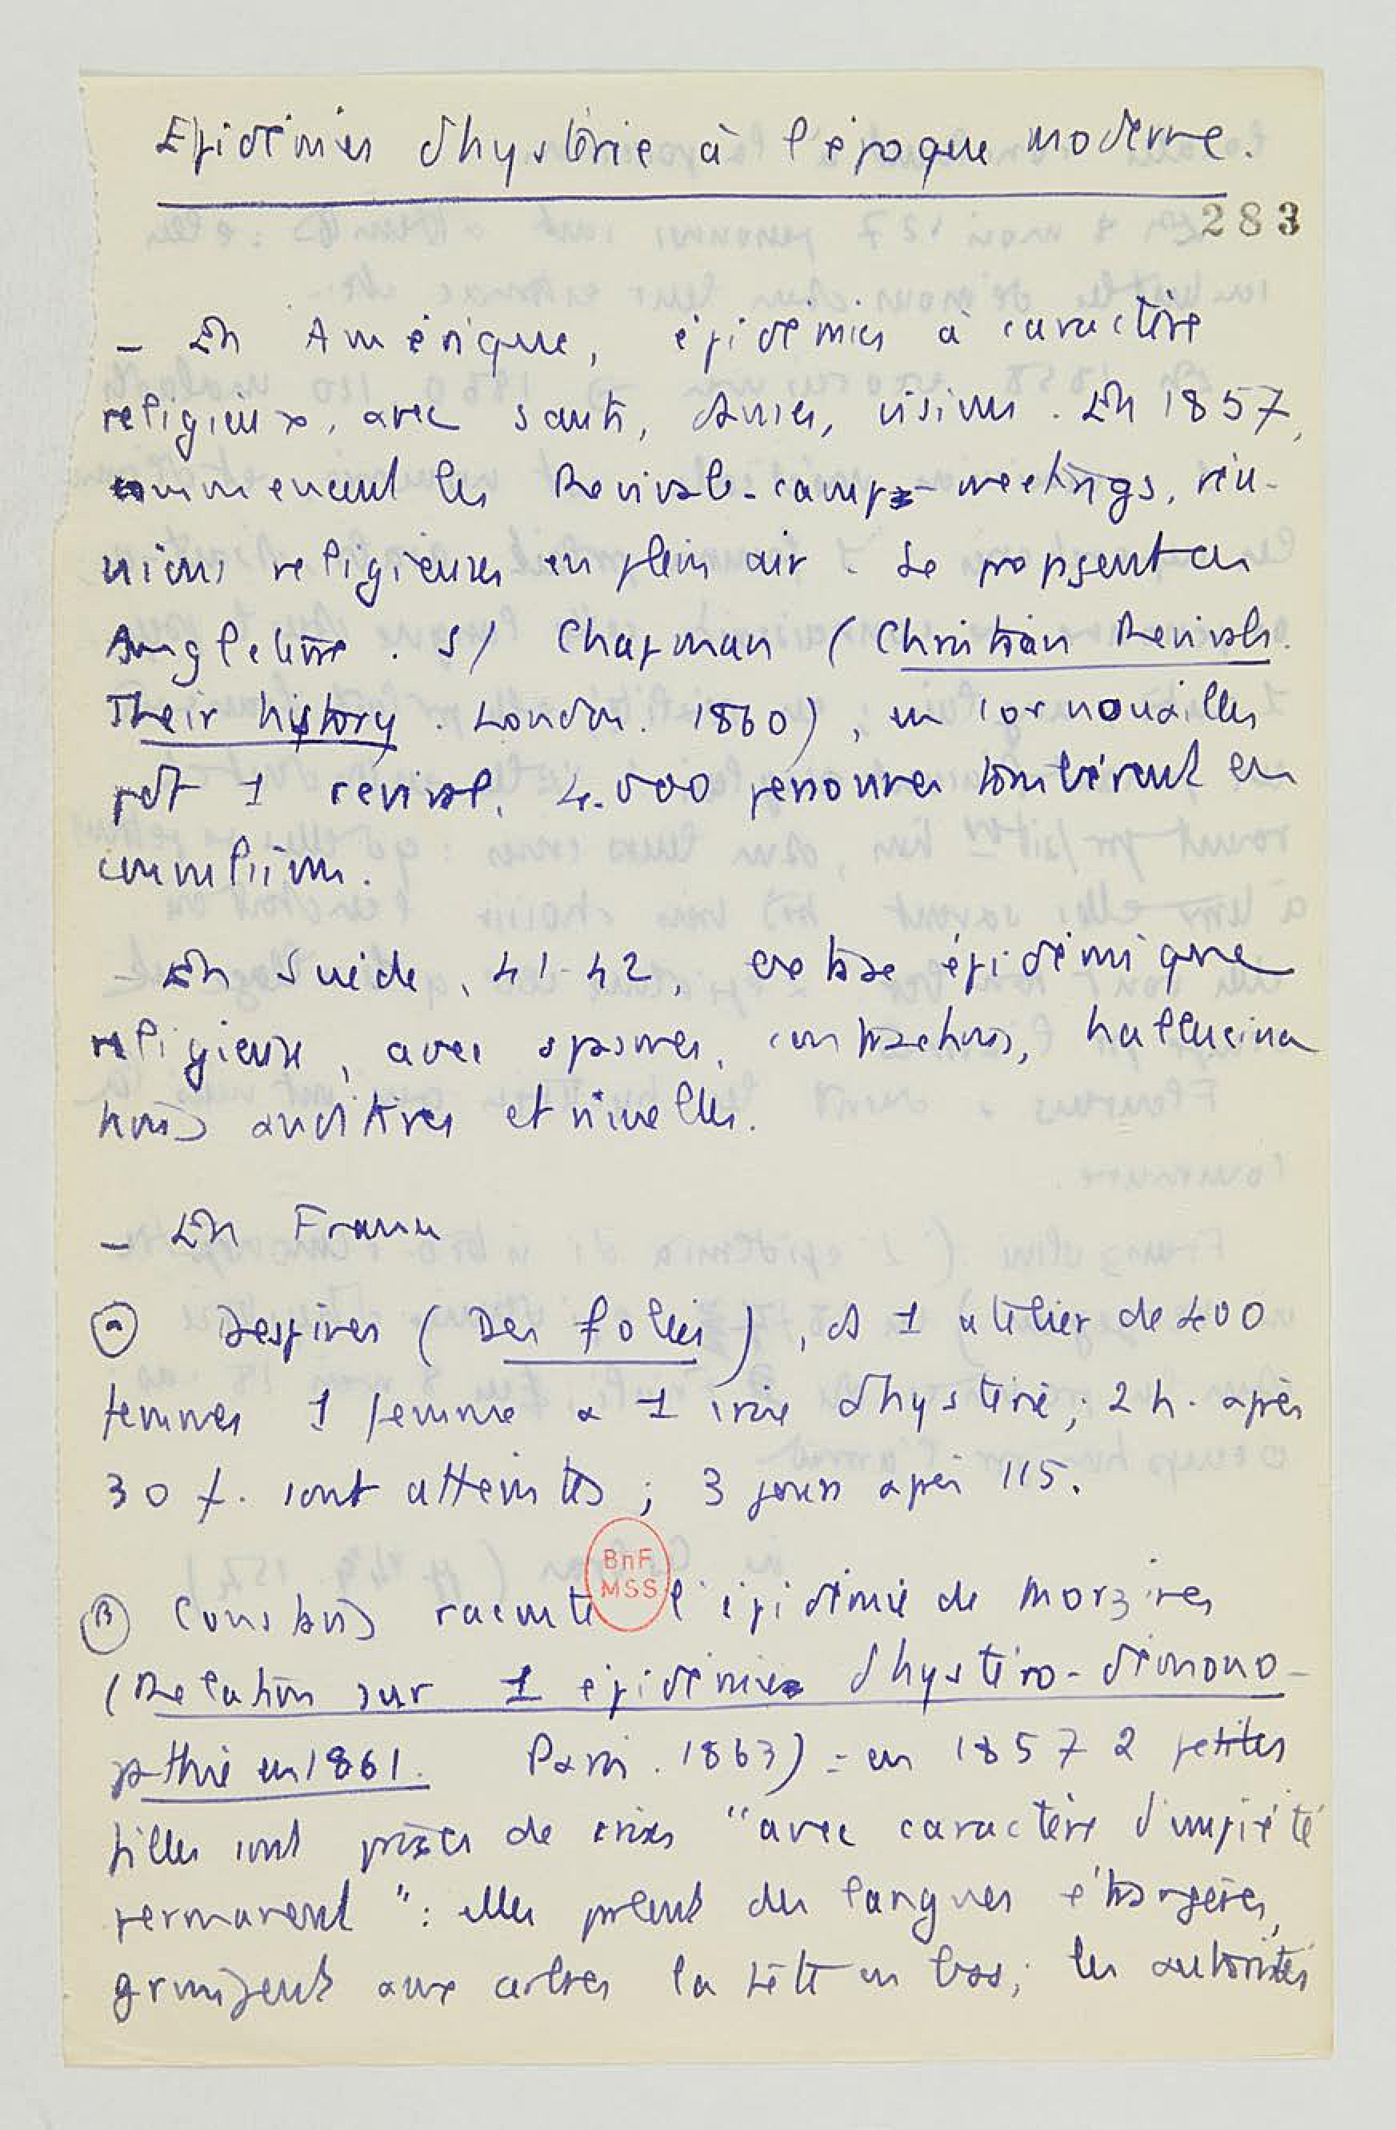 Epidémies d'hystérie à l'époque moderne.
283
– En Amérique, épidémies à caractère
religieux, avec sauts, danses, visions. En 1857,
commencent les Revivals-camps-meetings, réu-
nions religieuses en plein air. Se propagent en
Angleterre. S/ Chapman (Christian Revivals.
Their history. London. 1860), en Cornouailles
pdt 1 revival, 4.000 personnes tombèrent en
convulsions.
– En Suède, 41-42, extase épidémique
religieuse, avec spasmes, contractions, hallucina
tions auditives et visuelles.
– En France
(a) Despines (Des folies), ds 1 atelier de 400
femmes 1 femme a 1 crise d'hystérie; 2h. après
30 f. sont atteintes; 3 jours après 115.
BnF
MSS
(B) Constans raconte l'épidémie de Morzines
(Relation sur 1 épidémie d'hystéro-démono-
pathie en 1861. Paris. 1863) = en 1857 2 petites
filles sont prises de crises "avec caractère d'impiété
permanent": elles parlent des langues étrangères,
grimpent aux arbres la tête en bas; les autorités